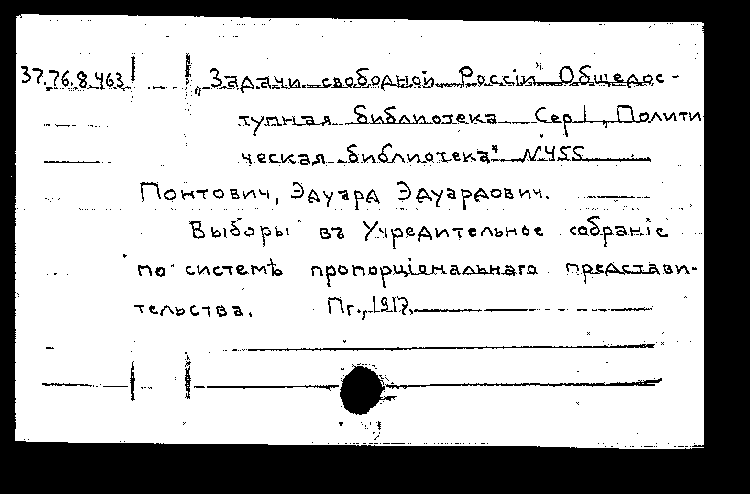 37.76.8.463 „Задачи свободной Россіи" Общедос-
тупная библиотека Сер I, Полити
ческая библиотека" № 455
Понтович, Эдуард Эдуардович.
Выборы въ Учредительное собраніе
по системѣ пропорціональнаго представи-
тельства. Пг., 1917.